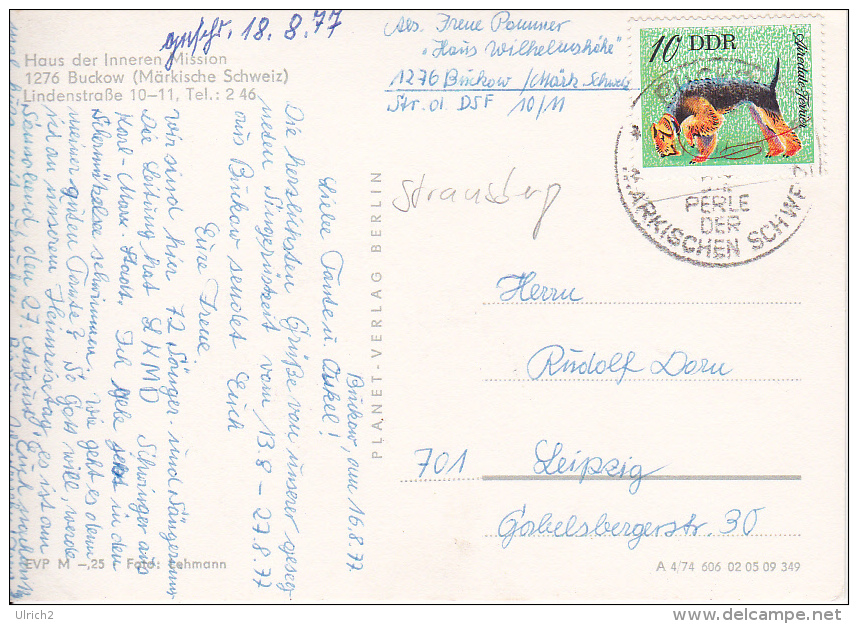 geschr. 18. 8. 77
Haus der Inneren Mission
1276 Buckow (Märkische Schweiz)
Lindenstraße 10–11, Tel.: 2 46
Abs. Irene Pommer
"Haus Wilhelmshöhe"
1276 Buckow /Märk. Schweiz
Str. d. DSF 10/11
10 DDR
Airedale-Terrier
PERLE
DER
MÄRKISCHEN SCHWEIZ
Strausberg
Buckow, am 16.8.77
Liebe Tanten Onkel!
Die herzlichsten Grüße von unserer geseg-
neten Singefreizeit vom 13.8 – 27.8.77
aus Buckow sendet Euch
Eure Irene
Wir sind hier 72 Sänger und Sängerinnen
Die Leitung hat LKMD Schwinger aus
Karl-Marx-Stadt. Ich gehe jetzt in den
schwimmen. Wie geht es denn
meiner guten Tante? So Gott will, werde
ich an unserem Heimreisetag, es ist am
Sonnabend den 27. August, Euch
PLANET-VERLAG BERLIN
Herrn
Rudolf Dorn
701 Leipzig
Gabelsbergerstr. 30
EVP M –,25 Foto: Lehmann
A 4/74 606 02 05 09 349
Ulrich2
delcampe.net